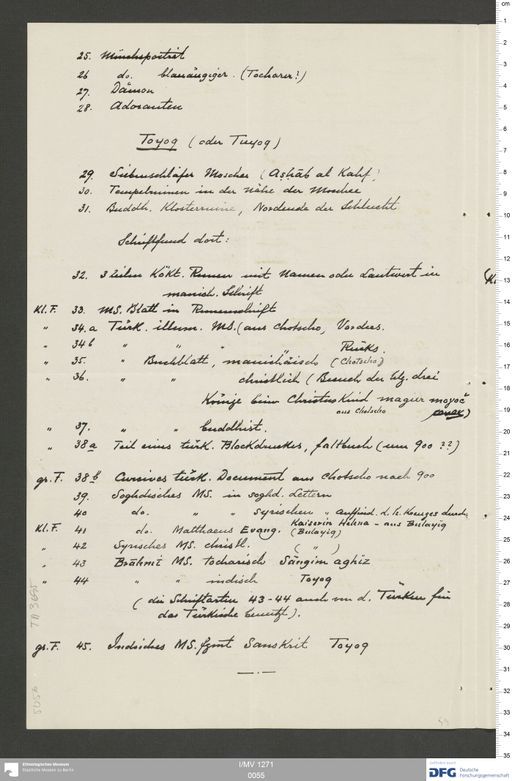 25. Mönchsportrait
26 do. blauäugiger. (Tocharer?)
27. Dämon
28. Adoranten
Toyog (oder Tuyog)
29. Siebenschläfer Moschee (Aṣḥāb al Kahf)
30. Tempelruinen in der Nähe der Moschee
31. Buddh. Klosterruine, Nordende der Schlucht
Schriftfund dort:
32. 3 Zeilen Kökt. Runen mit Namen oder Lautwert in
manich. Schrift
Kl. F. 33. MS. Blatt in Runenschrift
" 34.a Türk. illum. MS. (aus Chotscho, Vorders.
" 34b " " " Rücks.
" 35. " Buchblatt, manichäisch (Chotscho)
" 36. " " christlich (Besuch der hlg. drei
Könige beim Christuskind magier moγoč
aus Chotscho
" 37. " " buddhist.
" 38a Teil eines türk. Blockdruckes, Faltbuch (um 900 ??)
gr. F. 38b Cursives türk. Document aus Chotscho nach 900
39. Soghdisches MS. in soghd. Lettern
40 do. " " Syrischen " Auffind. d. h. Kreuzes durch
Kaiserin Helena - aus Bulayig
Kl. F. 41 do. Matthaeus Evang. (Bulayig)
" 42 Syrisches MS. christl. ( " )
" 43 Brāhmī MS. tocharisch Sängim aghiz
" 44 " " indisch Toyog
(die Schriftarten 43-44 auch von d. Türken für
das Türkische benutzt).
gr. F. 45. Indisches MS. fgmt Sanskrit Toyog
Ethnologisches Museum
Staatliche Museen zu Berlin
I/MV 1271
0055
DFG Deutsche
Forschungsgemeinschaft